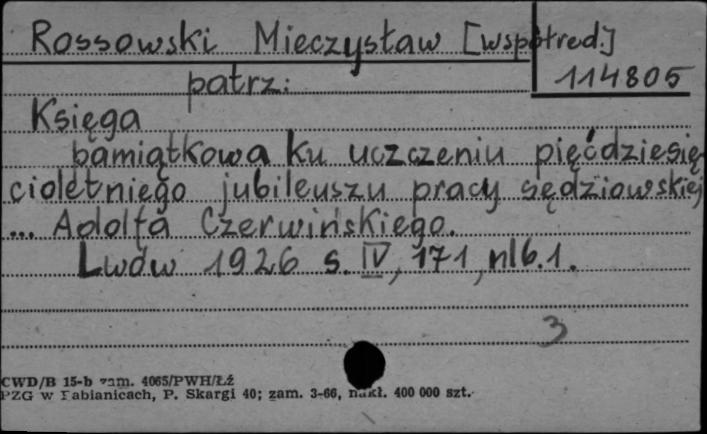 Rossowski Mieczysław [współred.]
patrz:
114805
Księga
pamiątkowa ku uczczeniu pięćdziesię-
cioletniego jubileuszu pracy sędziowskiej
... Adolfa Czerwińskiego.
Lwów 1926 s. IV, 171, nlb. 1.
3
CWD/B 15-b zam. 4065/PWH/Łź
PZG w Pabianicach, P. Skargi 40; zam. 3-66, nakł. 400 000 szt.